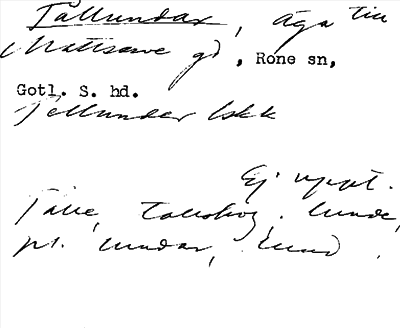 Tallundar, äga till
Mattsarve gd, Rone sn,
Gotl. S. hd.
Tallundar Iskk
Ej uppt.
Talle, tallskog. lunde,
pl. lundar, lund.